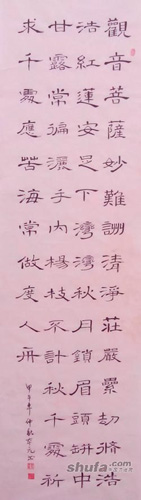 觀音菩薩妙難詶清淨莊嚴累劫脩浩
浩紅蓮安足下灣灣秋月鎖眉頭缾中
甘露常徧灑手內楊枝不計秋千處祈
求千處應苦海常做度人舟
甲午年仲秋
shufa.com